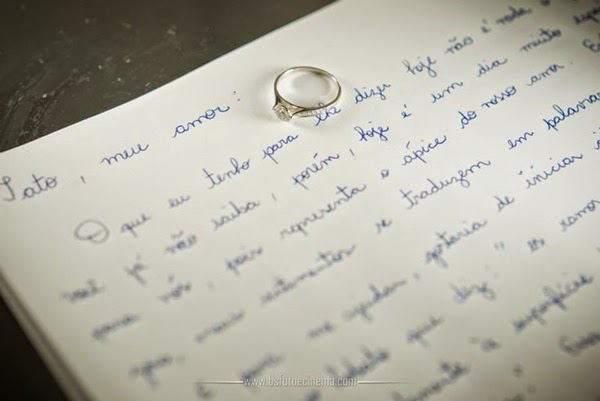 Tato, meu amor:
O que eu tenho para lhe dizer hoje não é nada
você já não saiba, porém, hoje é um dia muito
para nós, pois representa o ápice do nosso amor.
que, meus sentimentos se traduzem em palavras
E para me ajudar, gostaria de iniciar
ditado que diz: "os
à superfície
www.bsfotoecinema.com